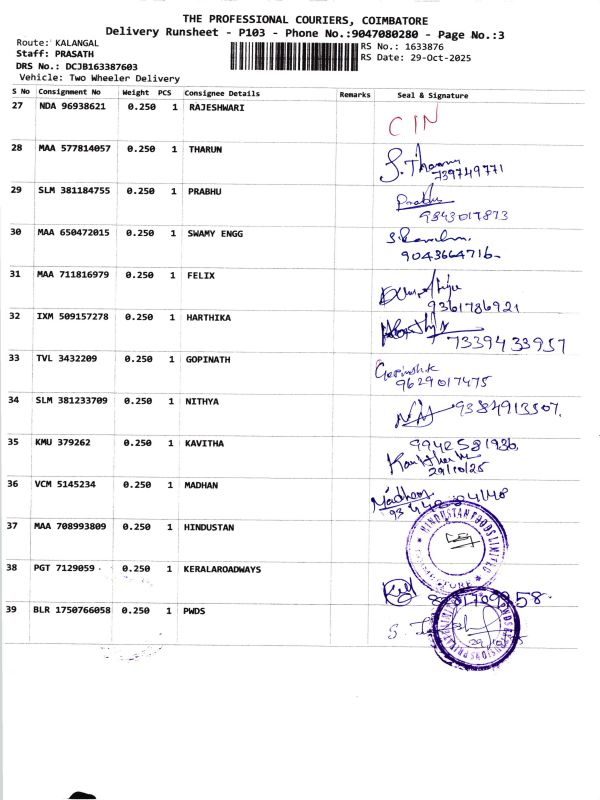 THE PROFESSIONAL COURIERS, COIMBATORE
Delivery Runsheet - P103 - Phone No.:9047080280 - Page No.:3
Route: KALANGAL
RS No.: 1633876
Staff: PRASATH
RS Date: 29-Oct-2025
DRS No.: DCJB163387603
Vehicle: Two Wheeler Delivery
S No Consignment No Weight PCS Consignee Details Remarks Seal & Signature
27 NDA 96938621 0.250 1 RAJESHWARI
CIN
28 MAA 577814057 0.250 1 THARUN
739749771
29 SLM 381184755 0.250 1 PRABHU
Prabhu
9843017873
30 MAA 650472015 0.250 1 SWAMY ENGG
9043664716
31 MAA 711816979 0.250 1 FELIX
9361786921
32 IXM 509157278 0.250 1 HARTHIKA
7339433957
33 TVL 3432209 0.250 1 GOPINATH
9629017475
34 SLM 381233709 0.250 1 NITHYA
9384913507.
35 KMU 379262 0.250 1 KAVITHA
9942581936
29/10/25
36 VCM 5145234 0.250 1 MADHAN
Madhan
37 MAA 708993809 0.250 1 HINDUSTAN
HINDUSTAN FOODS LIMITED
38 PGT 7129059 0.250 1 KERALAROADWAYS
39 BLR 1750766058 0.250 1 PWDS